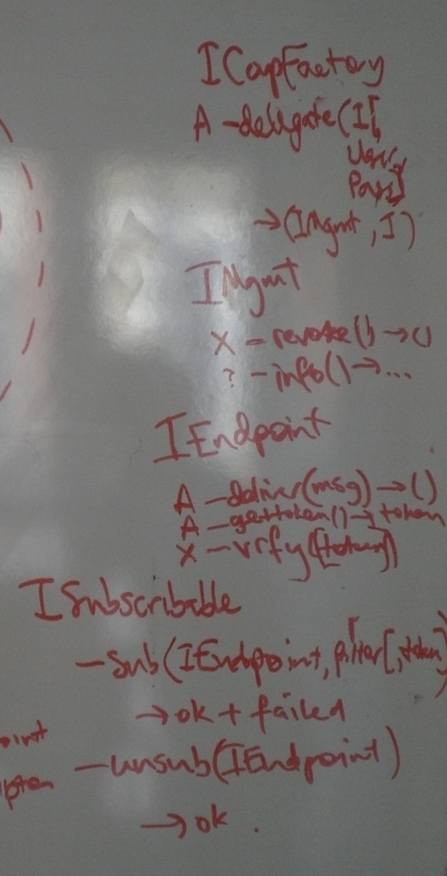 ICapFactory
A - delegate(I[,
User,
Pass]
→(IMgmt, I)
IMgmt
X - revoke() → ()
? - info() → ...
IEndpoint
A - deliver(msg) → ()
A - gettoken() → token
X - vrfy([token])
ISubscribable
- Sub(IEndpoint, filter[, token]
→ ok + failed
oint
- unsub(IEndpoint)
→ ok